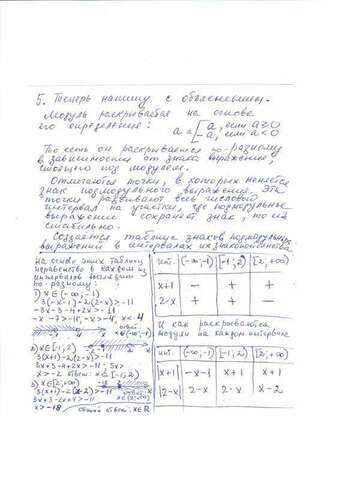 5. Теперь напишу с объяснением.
Модуль раскрывается на основе
его определения: a = [ a, если a ≥ 0
-a, если a < 0
То есть он раскрывается по-разному
в зависимости от знака выражения,
стоящего под модулем.
Отмечаются точки, в которых меняется
знак подмодульного выражения. Эти
точки разбивают весь числовой
интервал на участки, где подмодульное
выражение сохраняет знак, то есть
стабильно.
Создаётся таблица знаков подмодульных
выражений в интервалах их знакопостоянства:
инт. (-∞;-1) [-1;2) [2;+∞)
x+1 - + +
2-x + + -
И как раскрываются
модули на каждом интервале
инт. (-∞;-1) [-1;2) [2;+∞)
|x+1| -x-1 x+1 x+1
|2-x| 2-x 2-x x-2
На основе этих таблиц
неравенство в каждом из
интервалов выглядит
по-разному:
1) x∈(-∞;-1)
3(-x-1)-2(2-x)>-11
-3x-3-4+2x>-11
-x-7>-11, -x>-4, x<4
ответ:
x∈(-∞;-1)
2) x∈[-1;2)
3(x+1)-2(2-x)>-11
3x+3-4+2x>-11, 5x>
x>-2 ответ: x∈[-1;2)
3) x∈[2;+∞)
3(x+1)-2(x-2)>-11
3x+3-2x+4>-11
x>-18
ответ:
x∈[2;+∞)
Общий ответ: x∈R